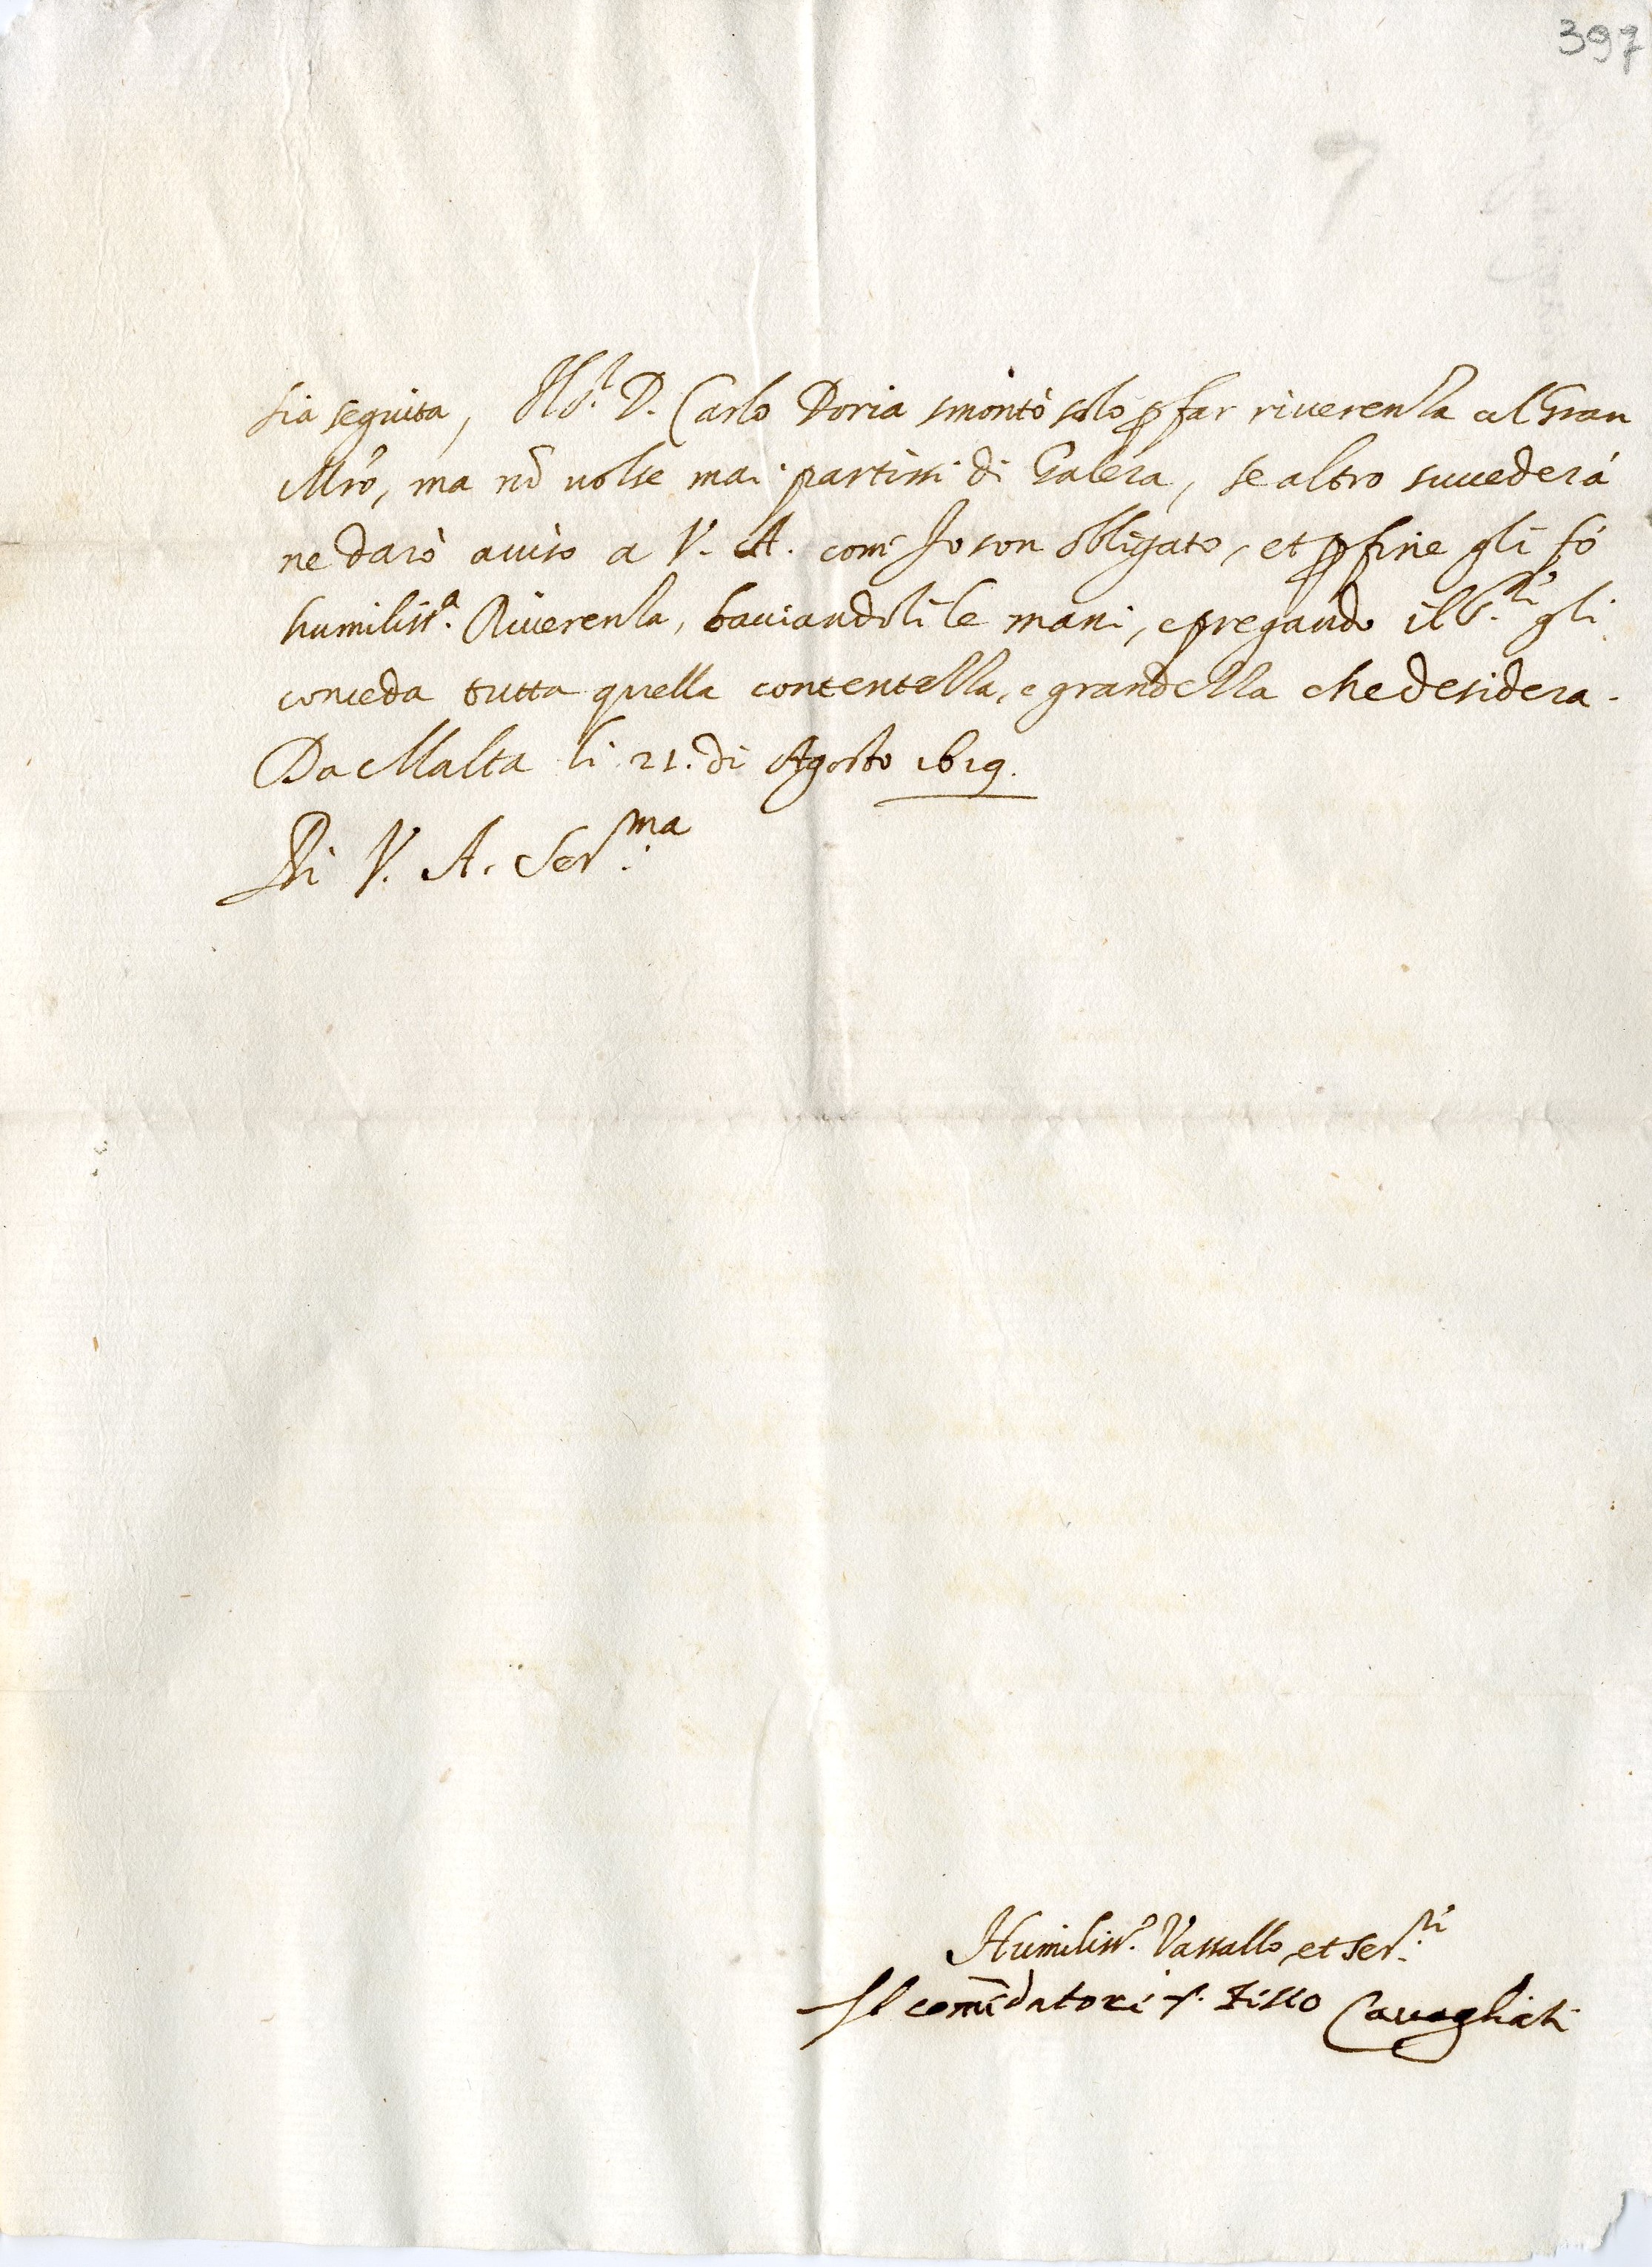 397
sia seguita, Il S.r D. Carlo Doria smontò solo p far riverenza al Gran
Mro, ma nō volse mai partirsi di Galera, se altro succederà
ne darò aviso a V. A. come Io son obligato, et p fine gli fò
humiliss.a Riverenza, baciandoli le mani, e pregando il S.r gli
conceda tutta quella contentezza, e grandezza che desidera.
Da Malta li 21. di Agosto 1619.
Di V. A. Ser.ma
Humiliss.o Vassallo, et ser.re
Il comēdatore f.